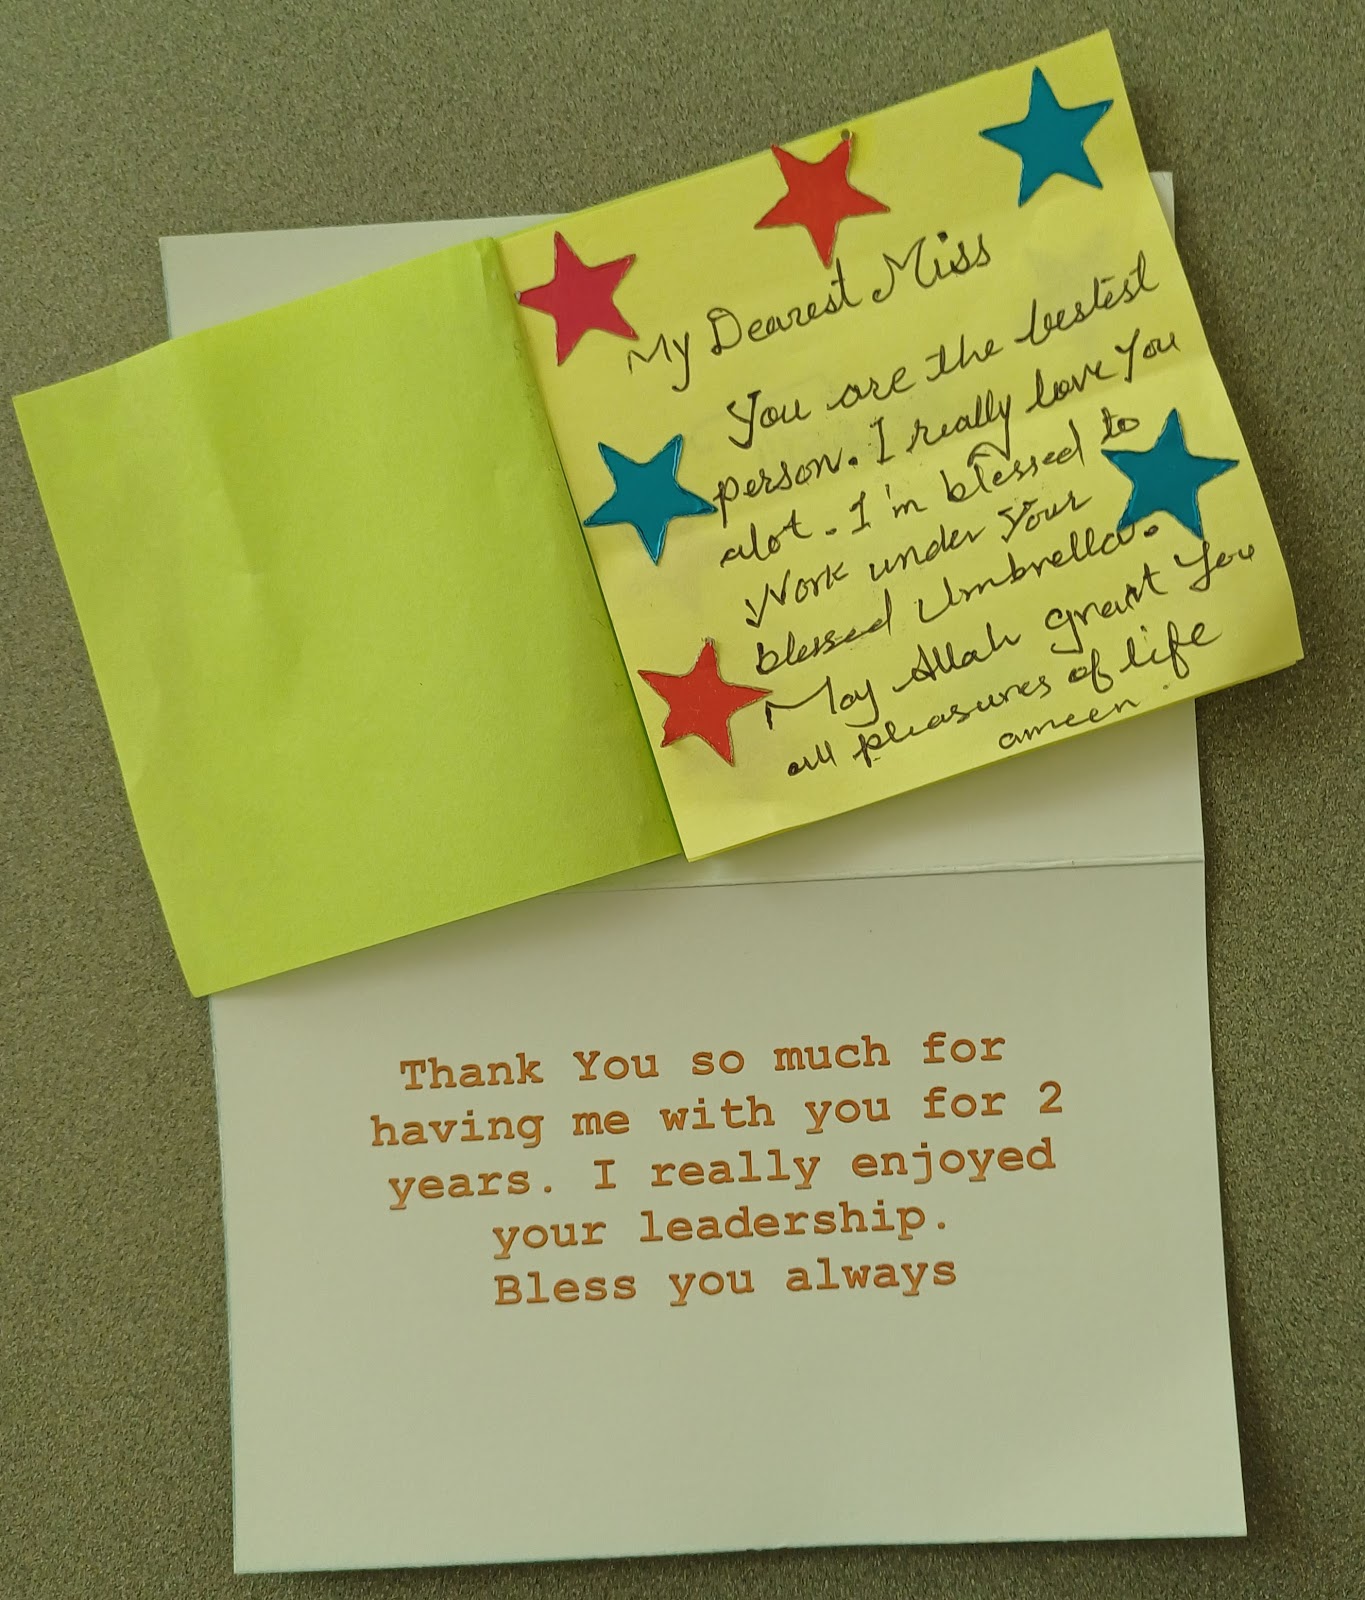 My Dearest Miss
You are the bestest
person. I really love You
alot. I'm blessed to
Work under Your
blessed Umbrella.
May Allah grant You
all pleasures of life
ameen.
Thank You so much for
having me with you for 2
years. I really enjoyed
your leadership.
Bless you always